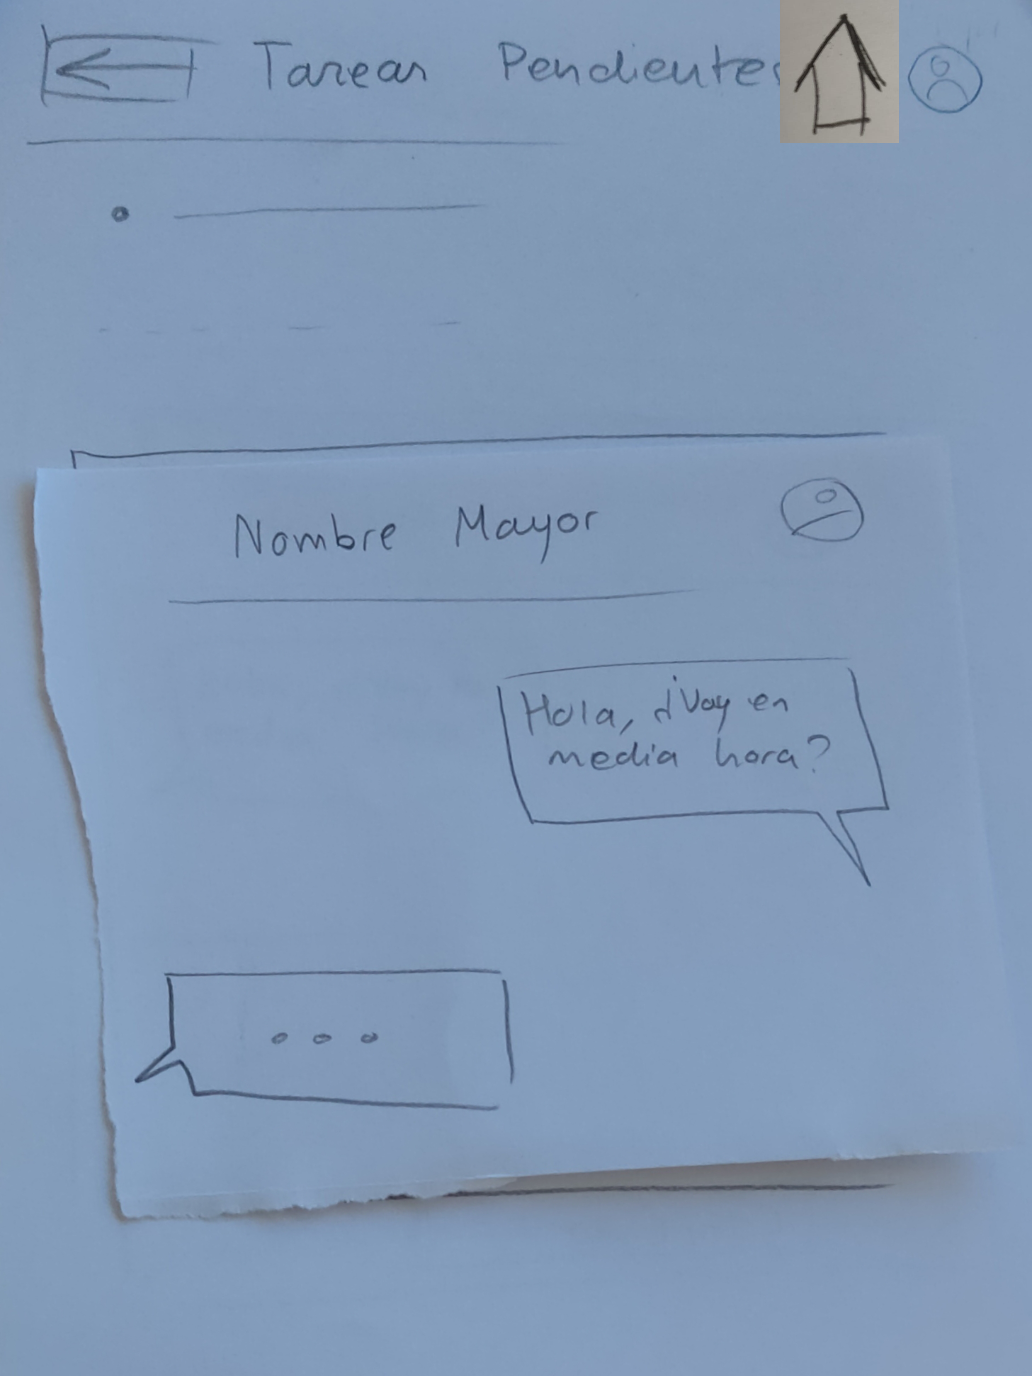 Tareas Pendientes
Nombre Mayor
Hola, ¿Voy en
media hora?
...